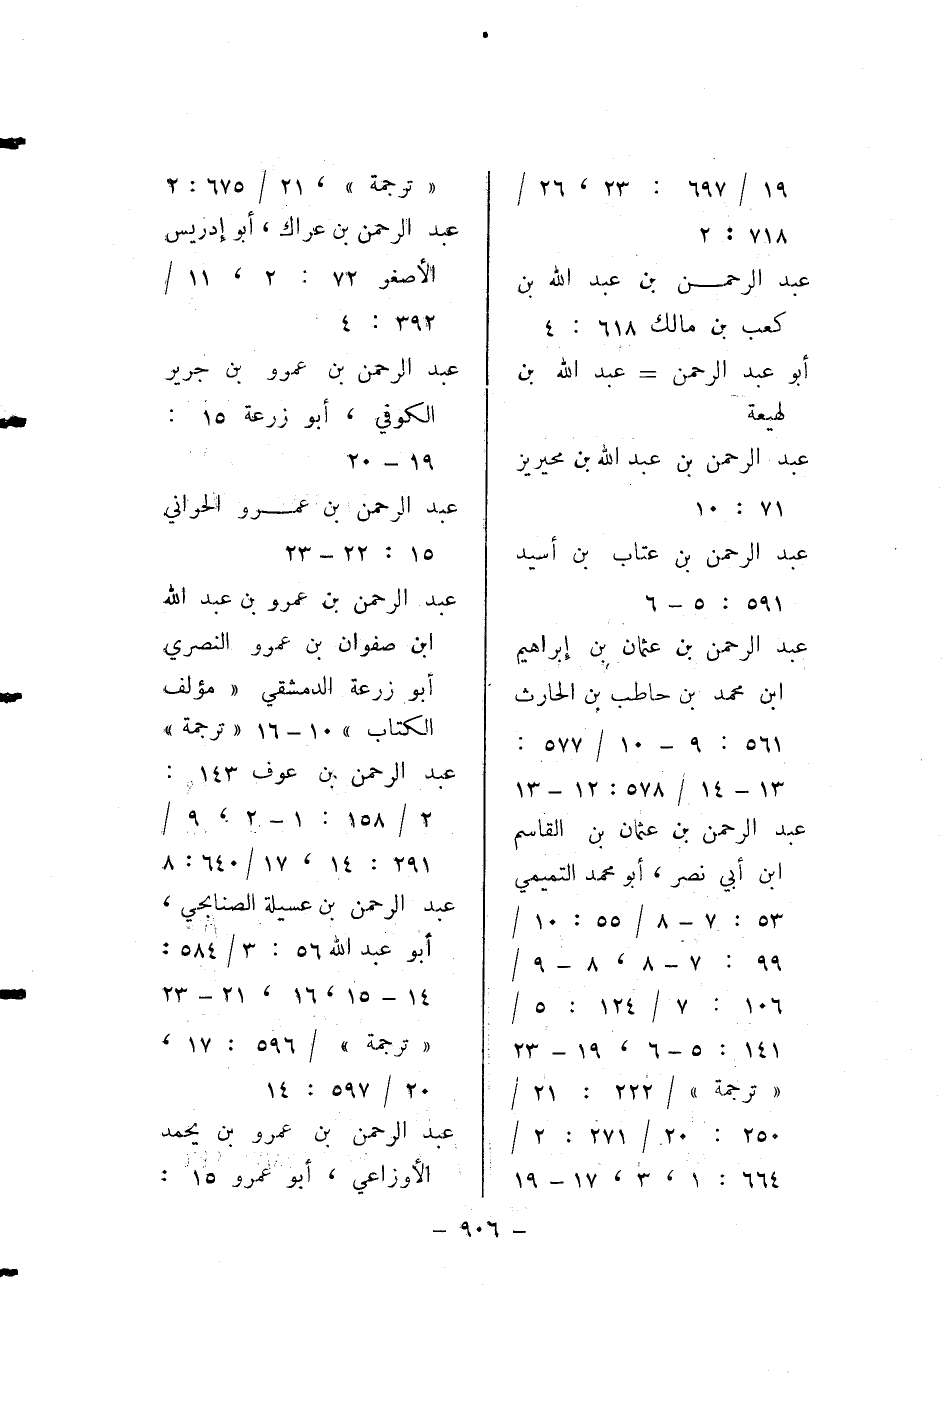 ١٩ / ٦٩٧ : ٢٣ ، ٢٦ /
٧١٨ : ٢
عبد الرحمـــن بن عبد الله بن
كعب بن مالك ٦١٨ : ٤
أبو عبد الرحمن = عبد الله بن
لهيعة
عبد الرحمن بن عبد الله بن محيريز
٧١ : ١٠
عبد الرحمن بن عتاب بن أسيد
٥٩١ : ٥ – ٦
عبد الرحمن بن عثمان بن إبراهيم
ابن محمد بن حاطب بن الحارث
٥٦١ : ٩ – ١٠ / ٥٧٧ :
١٣ – ١٤ / ٥٧٨ : ١٢ – ١٣
عبد الرحمن بن عثمان بن القاسم
ابن أبي نصر ، أبو محمد التميمي
٥٣ : ٧ – ٨ / ٥٥ : ١٠ /
٩٩ : ٧ – ٨ ، ٨ – ٩ /
١٠٦ : ٧ / ١٢٤ : ٥ /
١٤١ : ٥ – ٦ ، ١٩ – ٢٣
« ترجمة » / ٢٢٢ : ٢١ /
٢٥٠ : ٢٠ / ٢٧١ : ٢ /
٦٦٤ : ١ ، ٣ ، ١٧ – ١٩
« ترجمة » ، ٢١ / ٦٧٥ : ٢
عبد الرحمن بن عراك ، أبو إدريس
الأصغر ٧٢ : ٢ ، ١١ /
٣٩٢ : ٤
عبد الرحمن بن عمرو بن جرير
الكوفي ، أبو زرعة ١٥ :
١٩ – ٢٠
عبد الرحمن بن عمـــرو الحراني
١٥ : ٢٢ – ٢٣
عبد الرحمن بن عمرو بن عبد الله
ابن صفوان بن عمرو النصري
أبو زرعة الدمشقي « مؤلف
الكتاب » ١٠ – ١٦ « ترجمة »
عبد الرحمن بن عوف ١٤٣ :
٢ / ١٥٨ : ١ – ٢ ، ٩ /
٢٩١ : ١٤ ، ١٧ / ٦٤٠ : ٨
عبد الرحمن بن عسيلة الصنابحي ،
أبو عبد الله ٥٦ : ٣ / ٥٨٤ :
١٤ – ١٥ ، ١٦ ، ٢١ – ٢٣
« ترجمة » / ٥٩٦ : ١٧ ،
٢٠ / ٥٩٧ : ١٤
عبد الرحمن بن عمرو بن يحمد
الأوزاعي ، أبو عمرو ١٥ :
– ٩٠٦ –